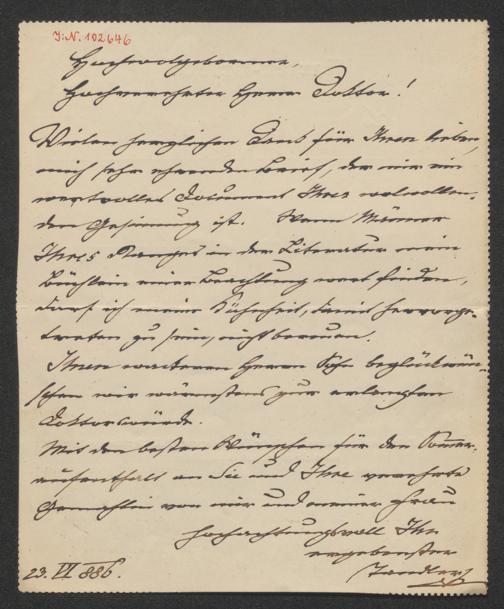 I.N. 102646
Hochwolgeborener,
Hochverehrter Herr Doktor!
Vielen herzlichen Dank für Ihren lieben,
mich sehr ehrenden Brief, der mir ein
wertvolles Document Ihrer wolwollen-
den Gesinnung ist. Wenn Männer
Ihres Ranges in der Literatur mein
Büchlein einer Beachtung wert finden,
darf ich meine Kühnheit, damit hervorge-
treten zu sein, nicht bereuen.
Ihren wackeren Herrn Sohn beglückwün-
schen wir wärmstens zur erlangten
Doktorwürde.
Mit den besten Wünschen für den Sommer-
aufenthalt an Sie und Ihre verehrte
Gemahlin von mir und meiner Frau
hochachtungsvoll Ihr
ergebenster
23. VI 886.